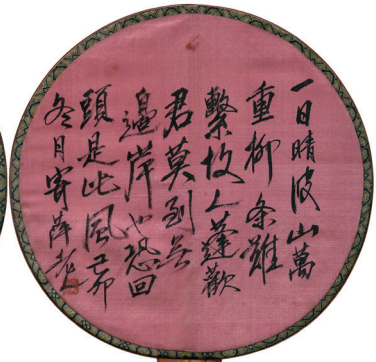 一日晴波山萬
重柳条難
繫故人蓬歡
君莫到無
邊岸也恐回
頭是此風乙卯
冬月寄萍老